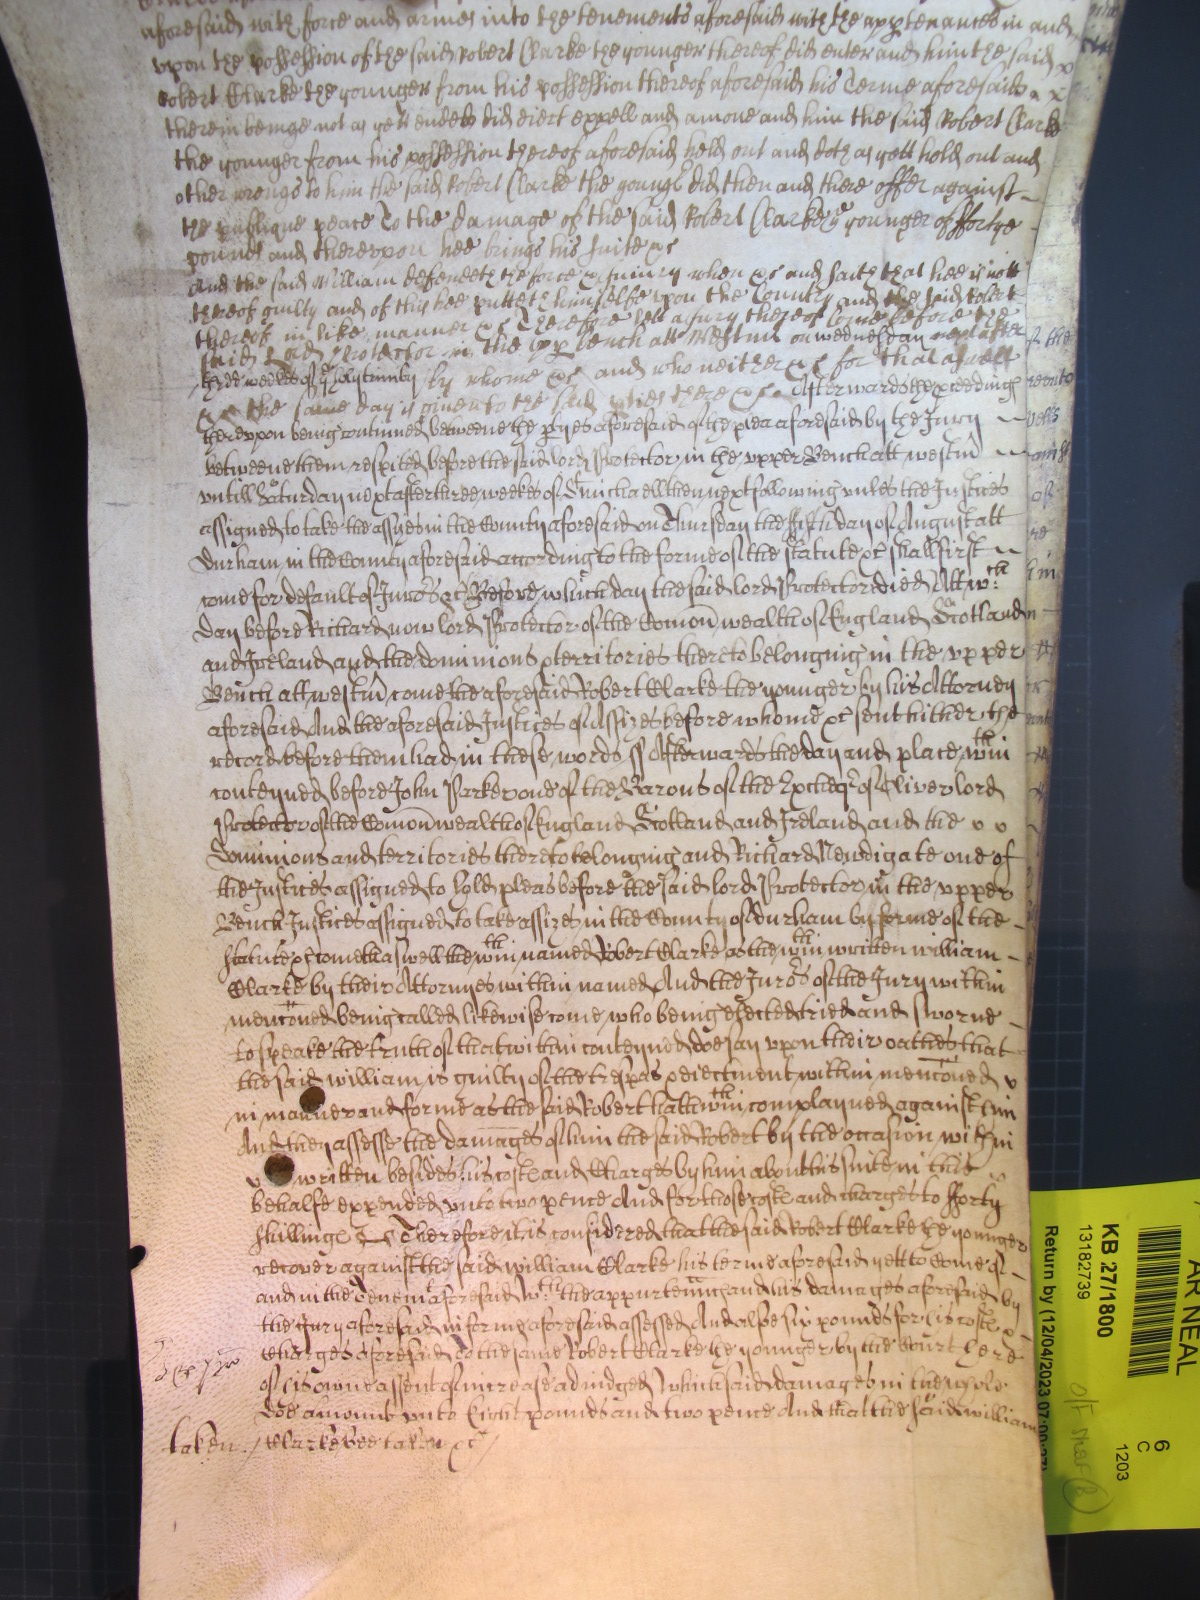 aforesaid with force and armes into the tenements aforesaid with the appertenances in and
upon the possession of the said Robert Clarke the younger thereof did enter and him the said
Robert Clarke the younger from his possession thereof aforesaid his Terme aforesaid
therein beinge not as yett ended did eiect expell and amove and him the said Robert Clarke
the younger from his possession thereof aforesaid held out and doth as yett hold out and
other wrongs to him the said Robert Clarke the youngr did then and there offer against
the publique peace To the damage of the said Robert Clarke ye younger of fforty
pounds and thereupon hee brings his suite &c
And the said William defendeth the force & Iniury when &c and saith that hee is nott
thereof guilty and of this hee putteth himselfe upon the Country and the said Robert
thereof in like manner &c Therefore lett a Jury thereof come before the
said Lord Protector in the upper bench att Westm on wednesday next after
three weekes of ye holy trinity by whome &c and who neither &c for that aswell
&c the same day is given to the said parties there &c Afterwards the proceedings
thereupon being continued betweene the ptyes aforesaid of the plea aforesaid by the Jury
betweene them respited before the said lord Protector in the upper Bench att westm
untill Saturday next after three weekes of St michaell then next following unles the Justices
assigned to take the assizes in the County aforesaid on Thursday the fifth day of August att
Durham in the County aforesaid according to the forme of the statute &c shall first
come for default of Jurors &c Before which day the said lord Protector died Att wch
day before Richard now lord Protector of the Comon wealth of England Scotland
and Ireland and the dominions & territories thereto belonging in the upper
Bench att westm come the aforesaid Robert Clarke the younger by his Attorney
aforesaid And the aforesaid Justices of Assizes before whome &c sent hither the
record before them had in these words ss Afterwards the day and place wthin
conteyned before John Parker one of the Barons of the Exchequer of Oliver lord
Protector of the Comon wealth of England Scotland and Ireland and the
Dominions and territories thereto belonging and Richard Newdigate one of
the Justices assigned to hold pleas before the said lord Protector in the upper
Bench Justices assigned to take assizes in the County of Durham by forme of the
statute &c cometh aswell the wthin named Robert Clarke as the wthin written william
Clarke by their Attornyes within named And the Jurors of the Jury within
menconed being called likewise come who being elected tried and sworne
to speake the truth of that within conteyned doe say upon their oathes that
the said william is guilty of the trespas & eiectment within menconed
in manner and forme as the said Robert hath wthin complayned against him
And they assesse the damages of him the said Robert by the occasion within
written besides his costs and Charges by him about his suite in this
behalfe expended unto two pence And for those costs and charges to fforty
shillings Therefore it is considered that the said Robert Clarke the younger
recover against the said william Clarke his terme aforesaid yett to Come of
and in the Tenemts aforesaid wth the appurtenncs and his damages aforesaid by
the Jury aforesaid in forme aforesaid assessed And alsoe six pounds for his costs &
Charges aforesaid to the same Robert Clarke the younger by the Court here
of his owne assent of increase adiudged which said damages in the whole
doe amount unto Eight pounds and two pence And that the said william
taken / Clarke bee taken &c /
KB 27/1800
13182739
Return by (12/04/2023 07:00:27)
AR NEAL
6
C
1203